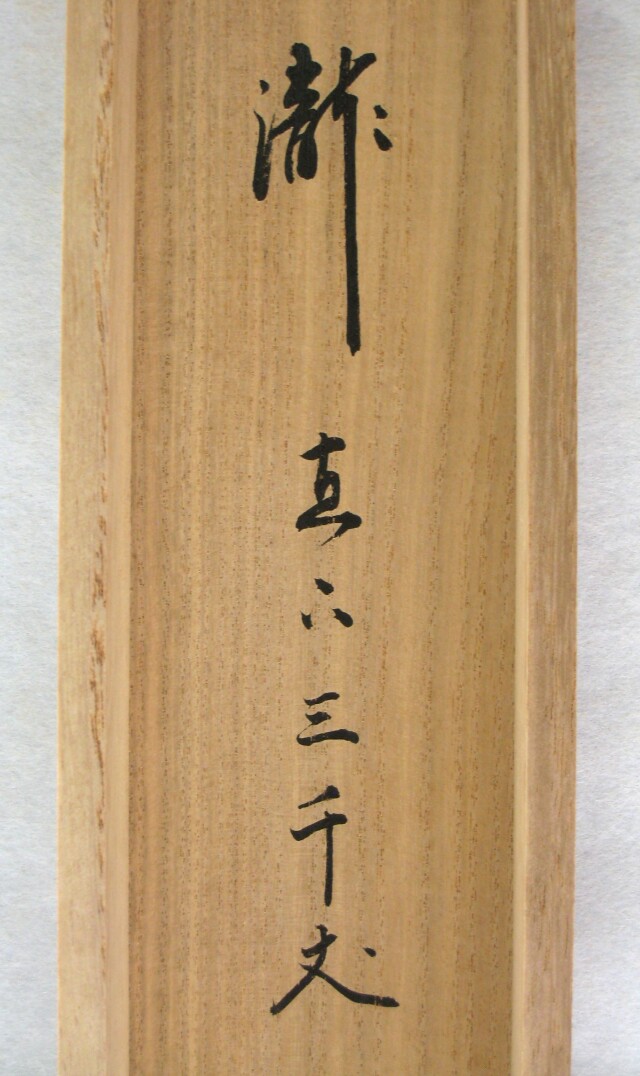 瀧 直下三千丈